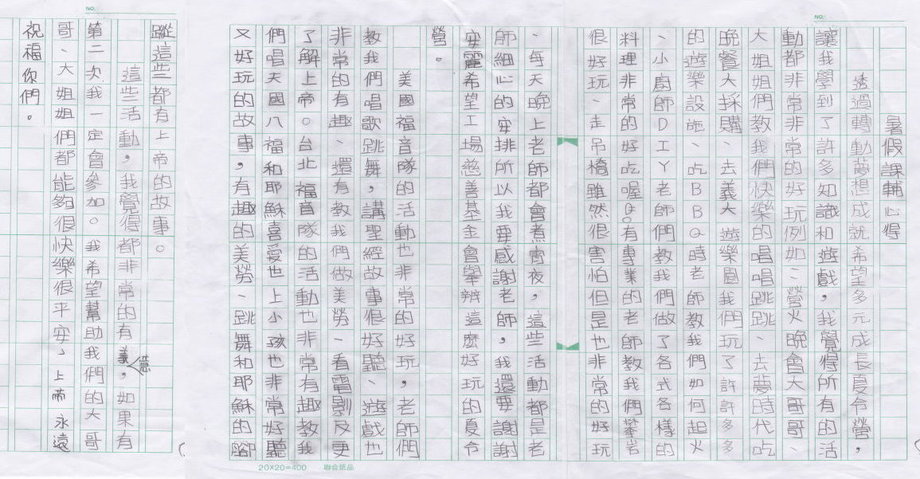 暑假課輔心得
透過轉動夢想成就希望多元成長夏令營，
讓我學到了許多知識和遊戲，我覺得所有的活
動都非常非常的好玩例如：營火晚會大哥哥、
大姐姐們教我們快樂的唱唱跳跳、去夢時代吃
晚餐大採購、去義大遊樂園我們玩了許許多多
的遊樂設施、吃BBQ時老師教我們如何起火
、小廚師DIY老師們教我們做了各式各樣的
料理非常的好吃喔QQ有專業的老師教我們攀岩
很好玩、走吊橋雖然很害怕但是也非常的好玩
、每天晚上老師都會煮宵夜，這些活動都是老
師細心的安排所以我要感謝老師，我還要謝謝
安麗希望工場慈善基金會舉辦這麼好玩的夏令
營。
美國福音隊的活動也非常的好玩，老師們
教我們唱歌跳舞，講聖經故事很好聽、遊戲也
非常的有趣、還有教我們做美勞、看電影反更
了解上帝。台北福音隊的活動也非常有趣教我
們唱天國八福和耶穌喜愛世上小孩也非常好聽
又好玩的故事，有趣的美勞、跳舞和耶穌的腳
蹤這些都有上帝的故事。
這些活動，我覺得都非常的有意義，如果有
第二次我一定會參加。我希望幫助我們的大哥
哥、大姐姐們都能夠很快樂很平安，上帝永遠
祝福你們。
NO.
NO.
20×20=400
聯合紙品